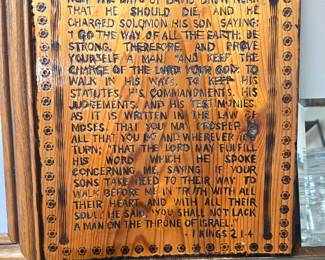 THAT HE SHOULD DIE, AND HE
CHARGED SOLOMON HIS SON, SAYING:
"I GO THE WAY OF ALL THE EARTH; BE
STRONG, THEREFORE, AND PROVE
YOURSELF A MAN. "AND KEEP THE
CHARGE OF THE LORD YOUR GOD: TO
WALK IN HIS WAYS, TO KEEP HIS
STATUTES, HIS COMMANDMENTS, HIS
JUDGEMENTS, AND HIS TESTIMONIES,
AS IT IS WRITTEN IN THE LAW OF
MOSES, THAT YOU MAY PROSPER IN
ALL THAT YOU DO AND WHEREVER YOU
TURN; "THAT THE LORD MAY FULFILL
HIS WORD WHICH HE SPOKE
CONCERNING ME, SAYING, 'IF YOUR
SONS TAKE HEED TO THEIR WAY, TO
WALK BEFORE ME IN TRUTH WITH ALL
THEIR HEART AND WITH ALL THEIR
SOUL,' HE SAID, 'YOU SHALL NOT LACK
A MAN ON THE THRONE OF ISRAEL.'"
- I KINGS 2:1-4